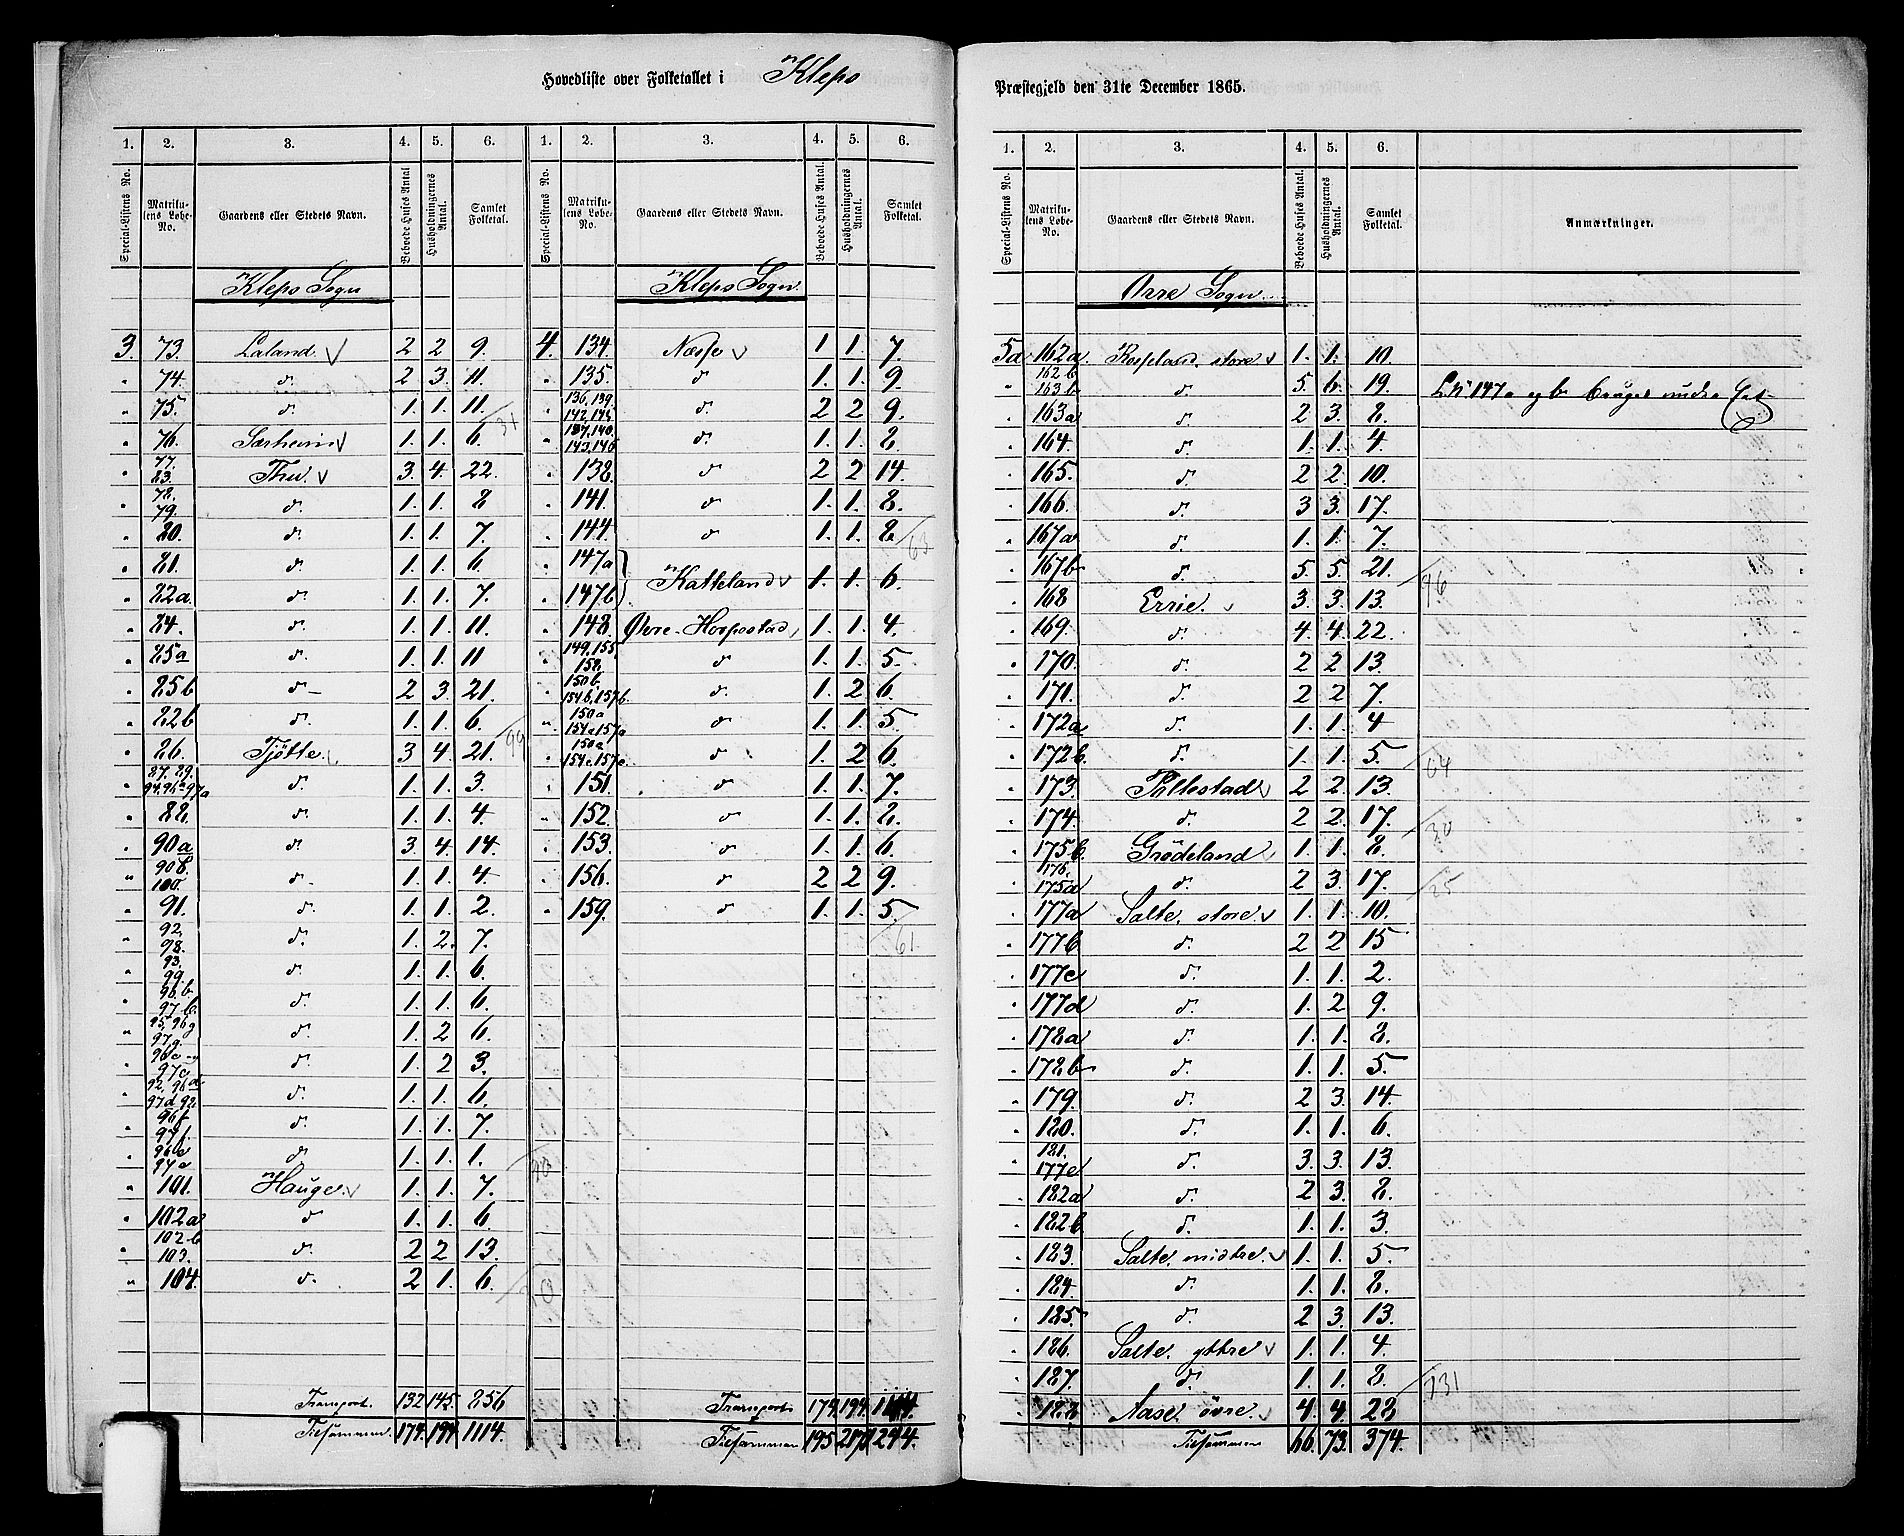 Hovedliste over Folketallet i Klepp
Præstegjeld den 31te December 1865.
1. 2. 3. 4. 5. 6. 1. 2. 3. 4. 5. 6.
Special-Listens No. Matrikulens Løbe-No. Gaardens eller Stedets Navn. Beboede Huses Antal Husholdningernes Antal. Samlet Folketal. Special-Listens No. Matrikulens Løbe-No. Gaardens eller Stedets Navn. Beboede Huses Antal. Husholdningernes Antal. Samlet Folketal.
Klepp Sogn Klepp Sogn
3. 73. Laland 2 2 9. 4. 134. Næsse 1. 1. 7.
" 74. d. 2 3. 11. " 135. d 1. 1. 9
" 75. d. 1. 1. 11. " 136, 139. 142, 145. d. 2 2 9.
31
" 76. Særheim 1. 1. 6. " 137, 140. 143, 146 d. 1. 1. 8.
" 77 83. Thu. 3. 4. 22. " 138. d 2 2 14.
" 78. 79. d. 1. 1. 8 " 141. d 1. 1. 8.
" 80. d. 1. 1. 7. " 144. d 1. 1. 8
63
" 81. d. 1. 1. 6 " 147a
" 82a. d. 1. 1. 7. " 147b Katteland 1. 1. 6.
" 84. d. 1. 1. 11. " 148. Øvre-Horpestad 1. 1. 4.
" 85a d. 1. 1. 11 " 149, 155, 158. d 1. 1. 5.
" 85b d- 2 3. 21. " 150b. 154b, 157b. d. 1. 2 6.
" 82b d. 1. 1. 6. " 150a 154a 157a d 1. 1. 5
99
" 86. Tjøtte 3 4. 21. " 150a 154c, 157c d 1. 2 6.
" 87. 89. 94. 96a 97a d. 1. 1. 3. " 151. d 1. 1. 7.
" 88. d. 1. 1. 4. " 152. d 1. 1. 8.
" 90a d. 3. 4. 14. " 153. d 1. 1. 6.
" 90b. 100. d. 1. 1. 4. " 156. d 2 2 9.
" 91. d. 1. 1. 2. " 159. d 1. 1. 5.
61.
" 92, 98. d. 1. 2. 7.
" 93. 99. d. 1. 1. 6.
" 96.b. 97.b. d. 1. 1. 6.
" 95, 96g 97g. d. 1. 2 6.
" 96c 97c d. 1. 2 3.
" 92, 96d 97d 98. d. 1. 1. 6.
" 96f 97f. d. 1. 1. 7.
" 96e 97e d. 1. 1. 1.
90
" 101. Hauge. 1. 1. 7.
" 102a d 1. 1. 6.
" 102b 103. d. 2 2 13.
" 104. d. 2 1. 6.
Transport. 132 145. 856 Transport 174. 194. 1114.
Tilsammen 174. 194. 1114. Tilsammen 195 217 1244.
1. 2. 3. 4. 5. 6.
Special-Listens No. Matrikulens Løbe-No. Gaardens eller Stedets Navn. Beboede Huses Antal. Husholdningernes Antal. Samlet Folketal. Anmærkninger.
Orre Sogn
5a 162a Rosseland, store 1. 1. 10
" 162b 163b d. 5. 6. 19. L.N 147a og b bruges under Eet
" 163a d. 2 3. 8.
" 164. d. 1. 1. 4.
" 165. d. 2 2. 10.
" 166. d. 3 3. 17.
" 167a d. 1. 1. 7.
" 167b d. 5. 5. 21.
96
" 168 Errie. 3. 3. 13.
" 169. d. 4. 4. 22.
" 170. d. 2 2 13.
" 171. d. 2 2 7.
" 172a d. 1. 1. 4
" 172b. d. 1. 1. 5.
64
" 173. Pollestad 2 2. 13.
" 174. d. 2 2. 17.
30
" 175b. Grødeland 1. 1. 8.
" 176, 175a d. 2 3. 17.
25
" 177a Salte, store 1. 1. 10.
" 177b d. 2 2 15
" 177c d. 1. 1. 2.
" 177d d. 1. 2 9.
" 178a d. 1. 1. 8.
" 178b d. 1. 1. 5.
" 179. d. 2 3. 14.
" 180. d. 1. 1. 6.
" 181. 177e d. 3. 3. 13.
" 182a d. 2 3. 8.
" 182b d. 1. 1. 3.
" 183. Salte, midtre 1. 1. 5
" 184. d. 1. 1. 8.
" 185. d. 2 3. 13.
" 186. Salte, yttre 1. 1. 4.
" 187. d. 1. 1. 8.
131
" 188 Aase, øvre. 4. 4. 28
Tilsammen 66. 73. 374.